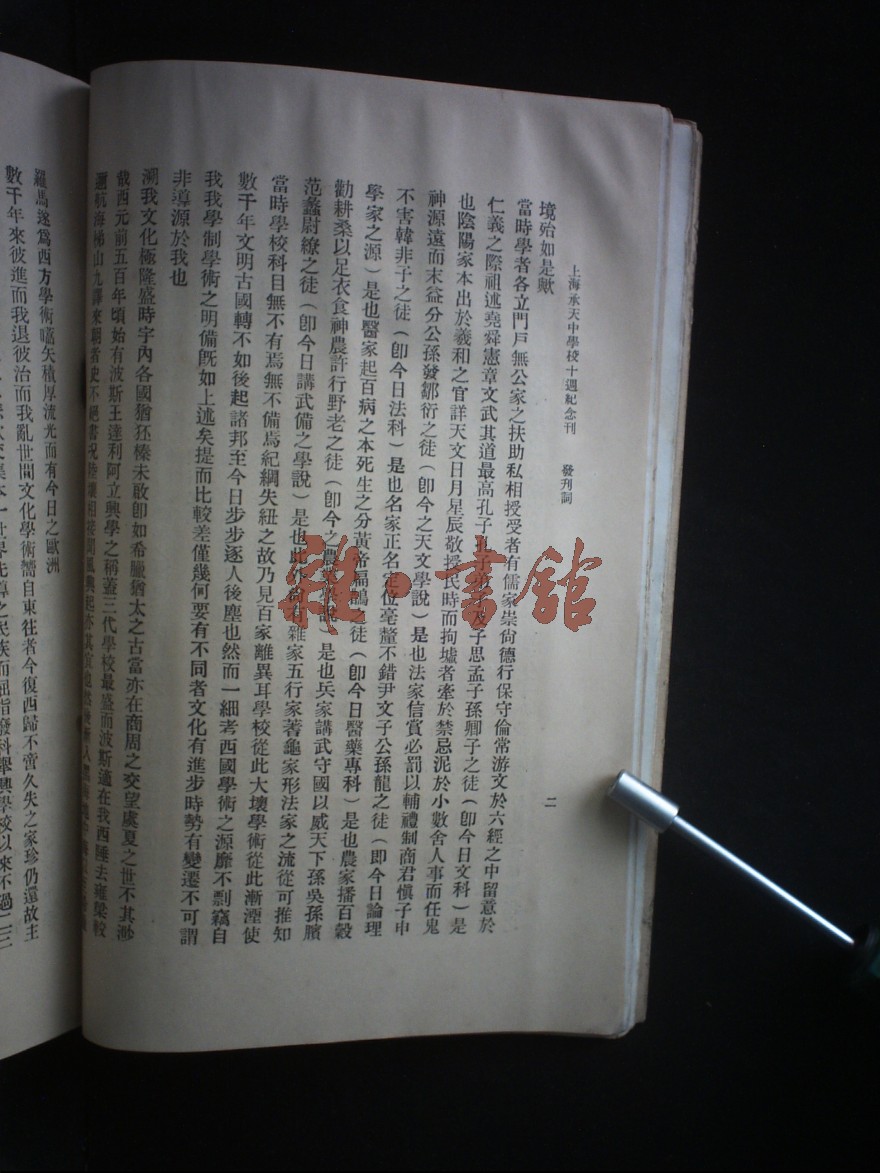 上海承天中學校十週紀念刊 發刊詞
二
境殆如是歟
當時學者各立門戶無公家之扶助私相授受者有儒家崇尙德行保守倫常游文於六經之中留意於
仁義之際祖述堯舜憲章文武其道最高孔子孔子弟子及子思孟子孫卿子之徒（卽今日文科）是
也陰陽家本出於羲和之官詳天文日月星辰敬授民時而拘墟者牽於禁忌泥於小數舍人事而任鬼
神源遠而末益分公孫發鄒衍之徒（卽今之天文學說）是也法家信賞必罰以輔禮制商君愼子申
不害韓非子之徒（卽今日法科）是也名家正名定位毫釐不錯尹文子公孫龍之徒（卽今日論理
學家之源）是也醫家起百病之本死生之分黃帝福鵲之徒（卽今日醫藥專科）是也農家播百穀
勸耕桑以足衣食神農許行野老之徒（卽今之農業學說）是也兵家講武守國以威天下孫吳孫臏
范蠡尉繚之徒（卽今日講武備之學說）是也此外尙有雜家五行家著龜家形法家之流從可推知
當時學校科目無不有焉無不備焉紀綱失紐之故乃見百家離異耳學校從此大壞學術從此漸湮使
數千年文明古國轉不如後起諸邦至今日步步逐人後塵也然而一細考西國學術之源靡不剽竊自
我我學制學術之明備旣如上述矣提而比較差僅幾何要有不同者文化有進步時勢有變遷不可謂
非導源於我也
溯我文化極隆盛時宇內各國猶狉榛未敢卽如希臘猶太之古當亦在商周之交望虞夏之世不其渺
哉西元前五百年頃始有波斯王達利阿立興學之稱蓋三代學校最盛而波斯適在我西陲去雍梁較
邇航海梯山九譯來朝者史不絕書況陸壤相接聞風興起亦其
羅馬遂爲西方學術嚆矢積厚流光而有今日之歐洲
數千年來彼進而我退彼治而我亂世間文化學術嚮自東往者今復西歸不啻久失之家珍仍還故主
世界先導之民族而屈指發科舉興學校以來不過二三
雜·書館